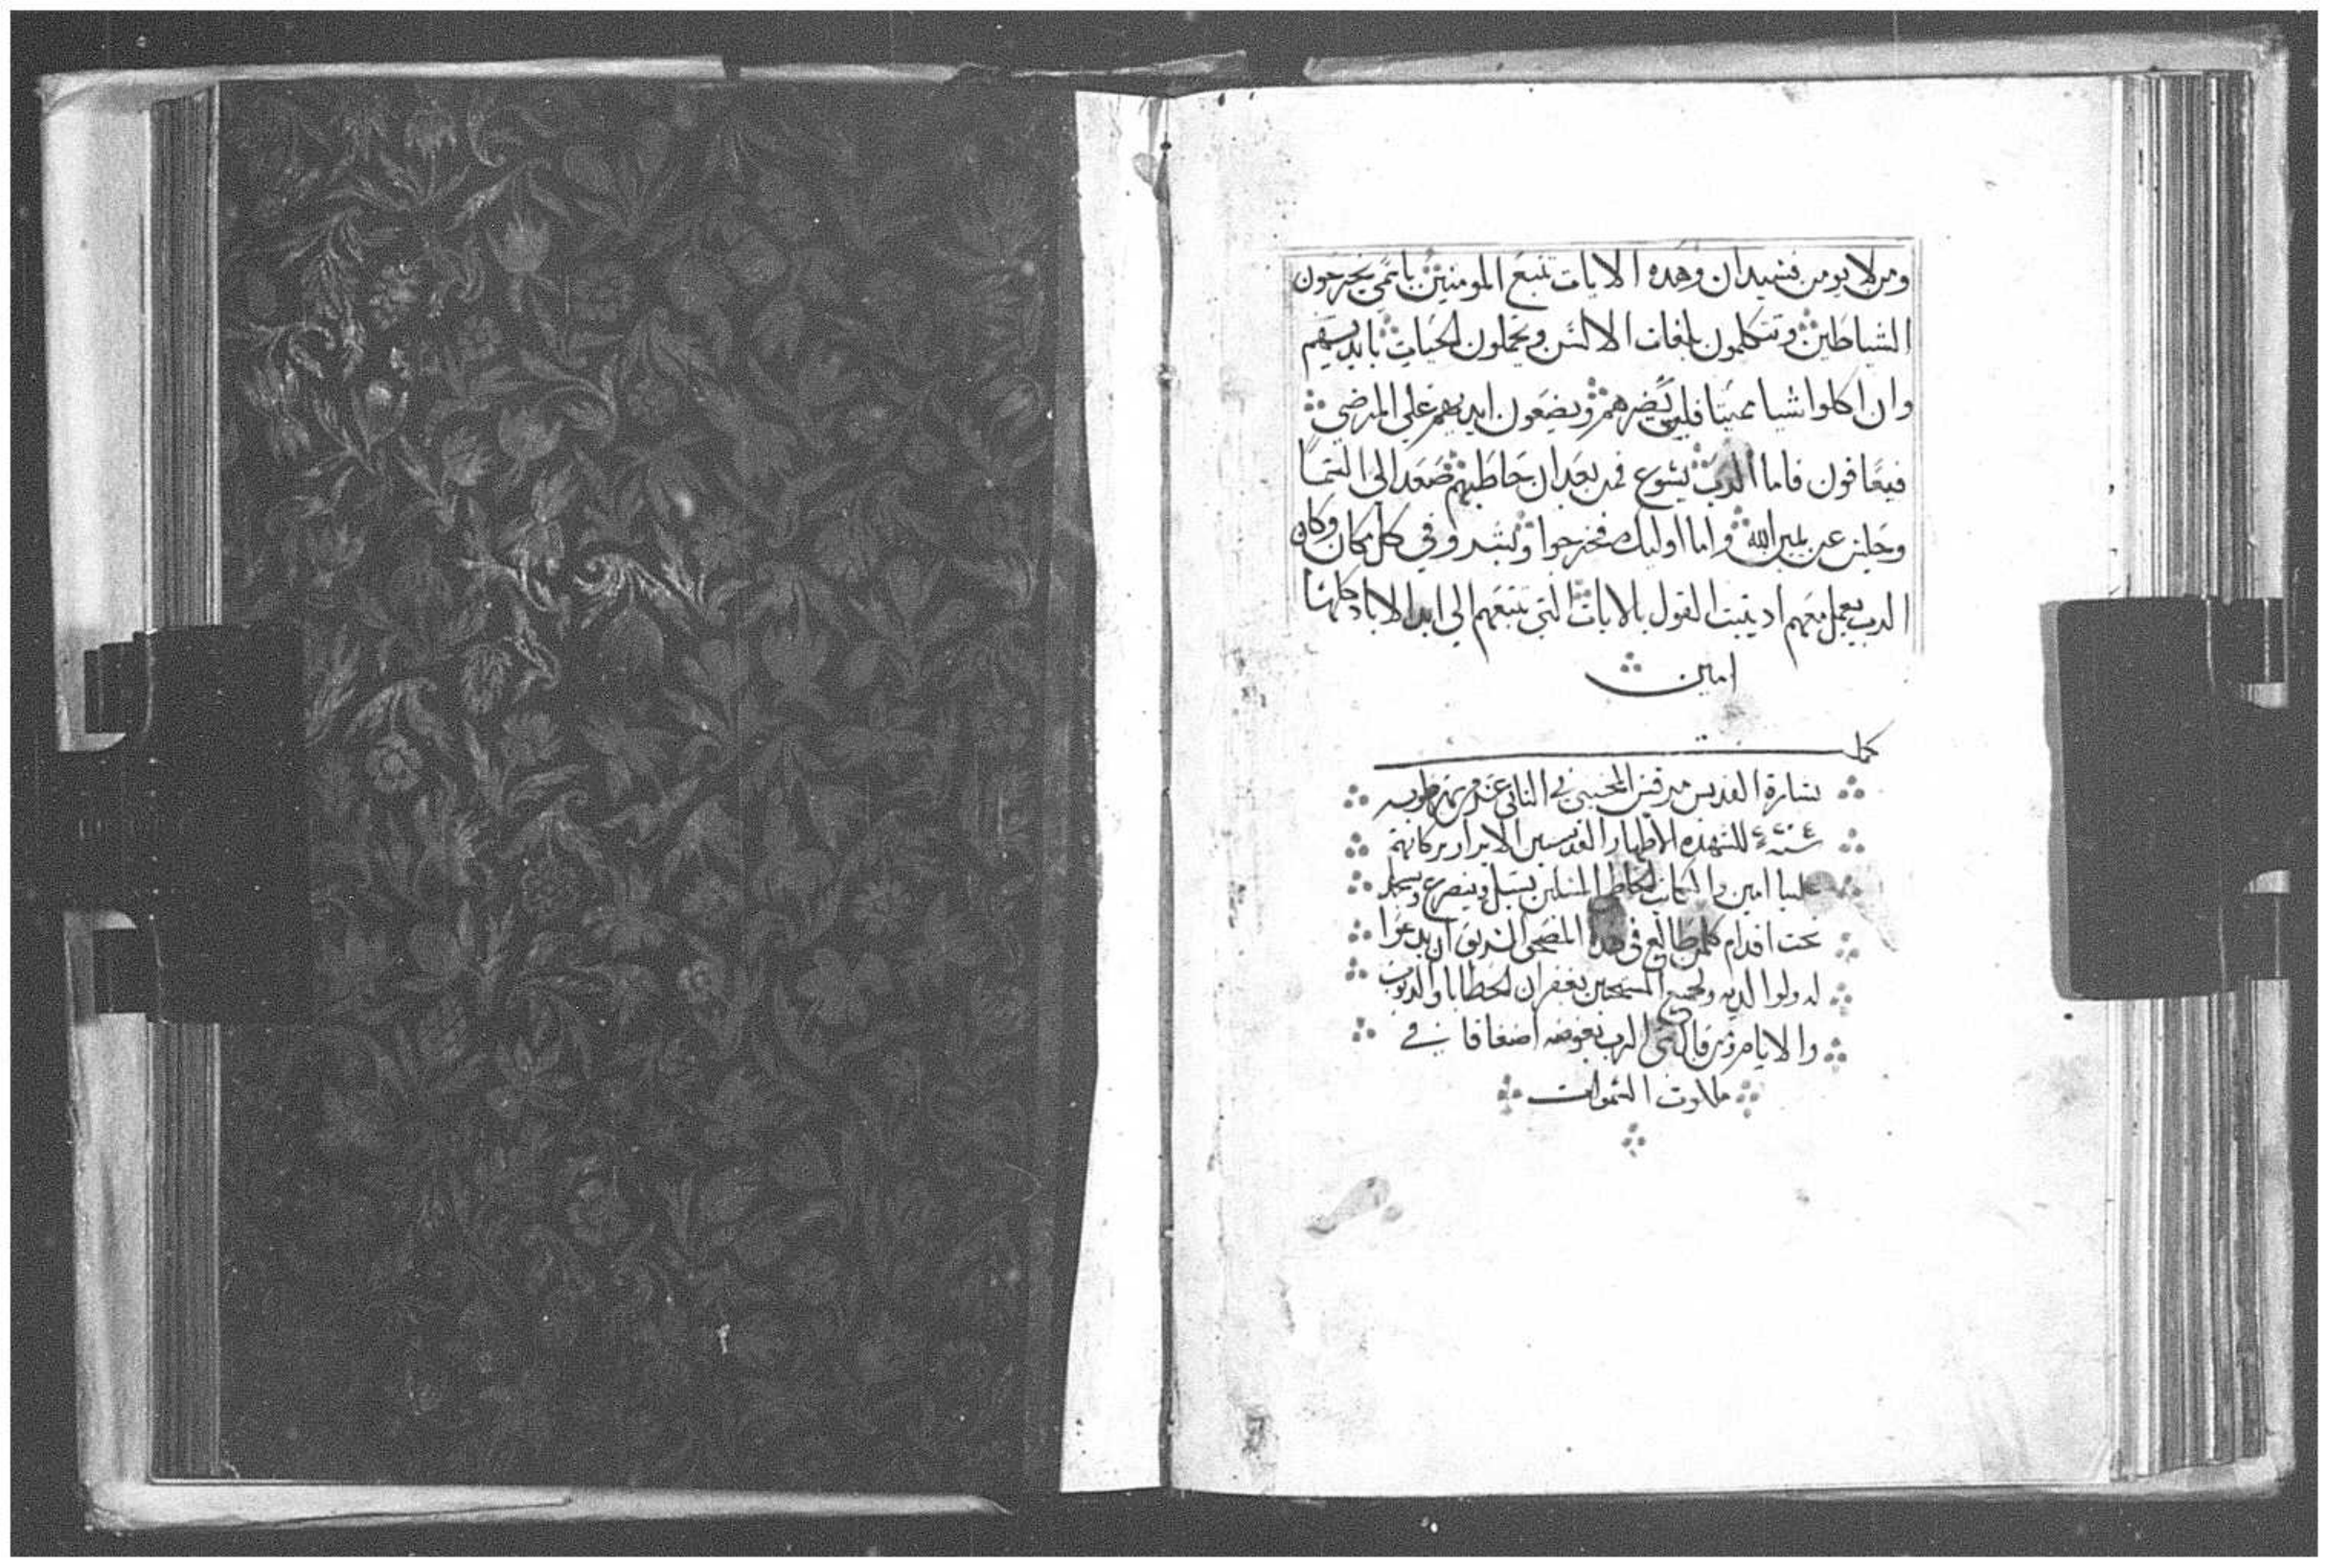 ومن لا يومن فسيدان وهده الايات تتبع المومنين باسمي يخرجون
الشياطين وتتكلمون بلغات الالسن ويحملون الحيات بايديهم
وان اكلوا شيا مميتا فليس يضرهم ويضعون ايديهم علي المرضي
فيعافون فاما الرب يسوع فمن بعد ان خاطبهم صعد الي السما
وجلس عن يمين الله واما اوليك فخرجوا وبشروا في كل مكان وكان
الرب يعمل معهم اد يتبت القول بالايات التي تتبعهم الي ابد الاباد كلها
امين
كمل
بشارة القديس مرقس الانجيلي في الثاني عشر من شهر طوبه
سنة للشهدا الاطهار القديسين الابرار بركاتهم
علينا امين والكاتب الخاطي المسكين يسل ويتضرع ويسجد
تحت اقدام كلمن طالع في هدا المصحف الشريف ان يدعوا
له ولوالديه ولجميع المسيحيين بغفران الخطايا والدنوب
والاتام ومن قال شي الرب يعوضه اضعافا في
ملكوت السموات